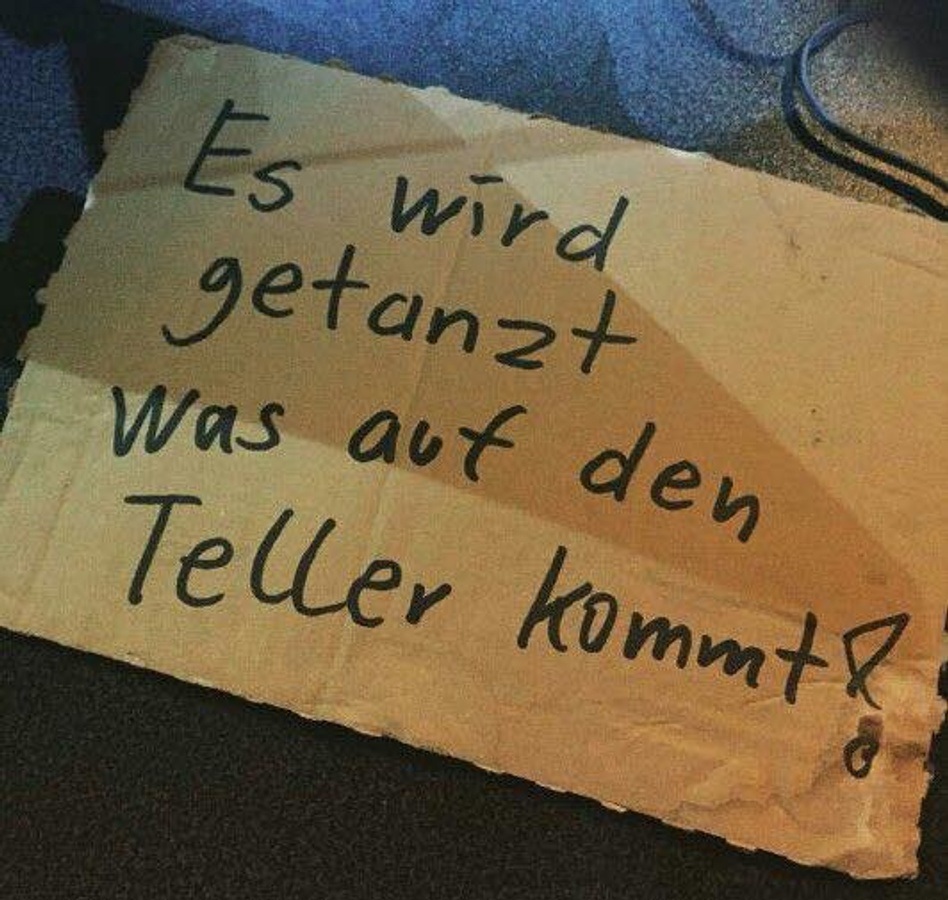 Es wird
getanzt
was auf den
Teller kommt!